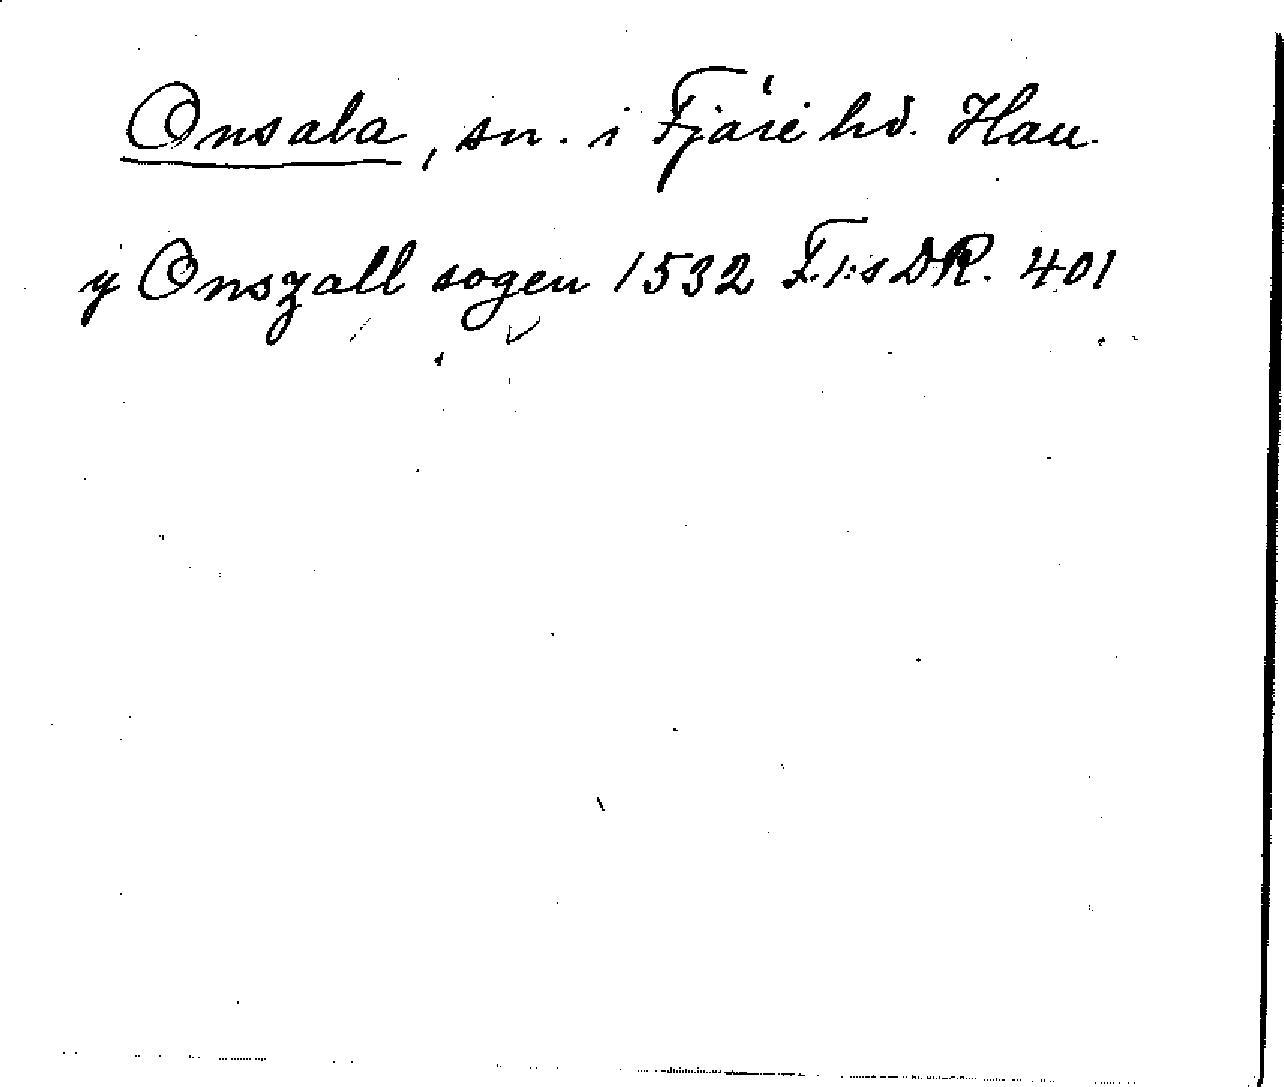 Onsala, sn. i Fjäre hd. Hall.
y Onszall sogen 1532 F.I:s DR. 401